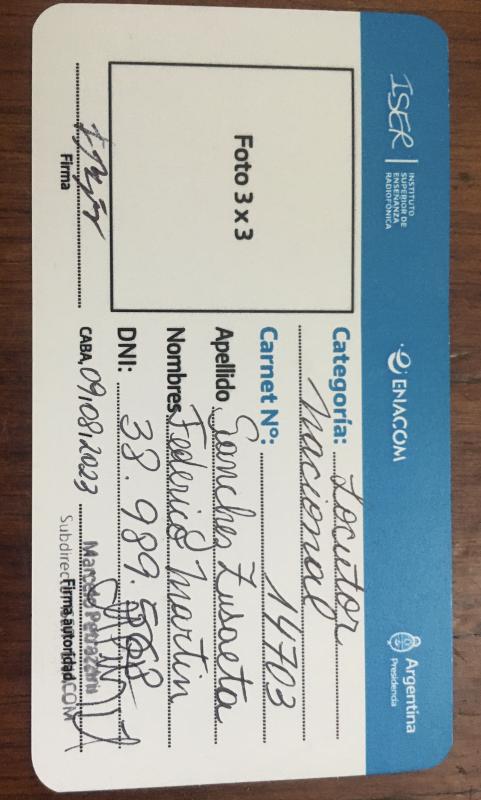 ISER
INSTITUTO
SUPERIOR DE
ENSEÑANZA
RADIOFÓNICA
ENACOM
Argentina
Presidencia
Foto 3 x 3
Categoría: Locutor
Nacional
Carnet Nº: 14703
Apellido Sanchez Zusaeta
Nombres Federico Martin
DNI: 38.989.508
Firma
CABA 09/08/2023
Marcelo Petrazzini
Firma autoridad